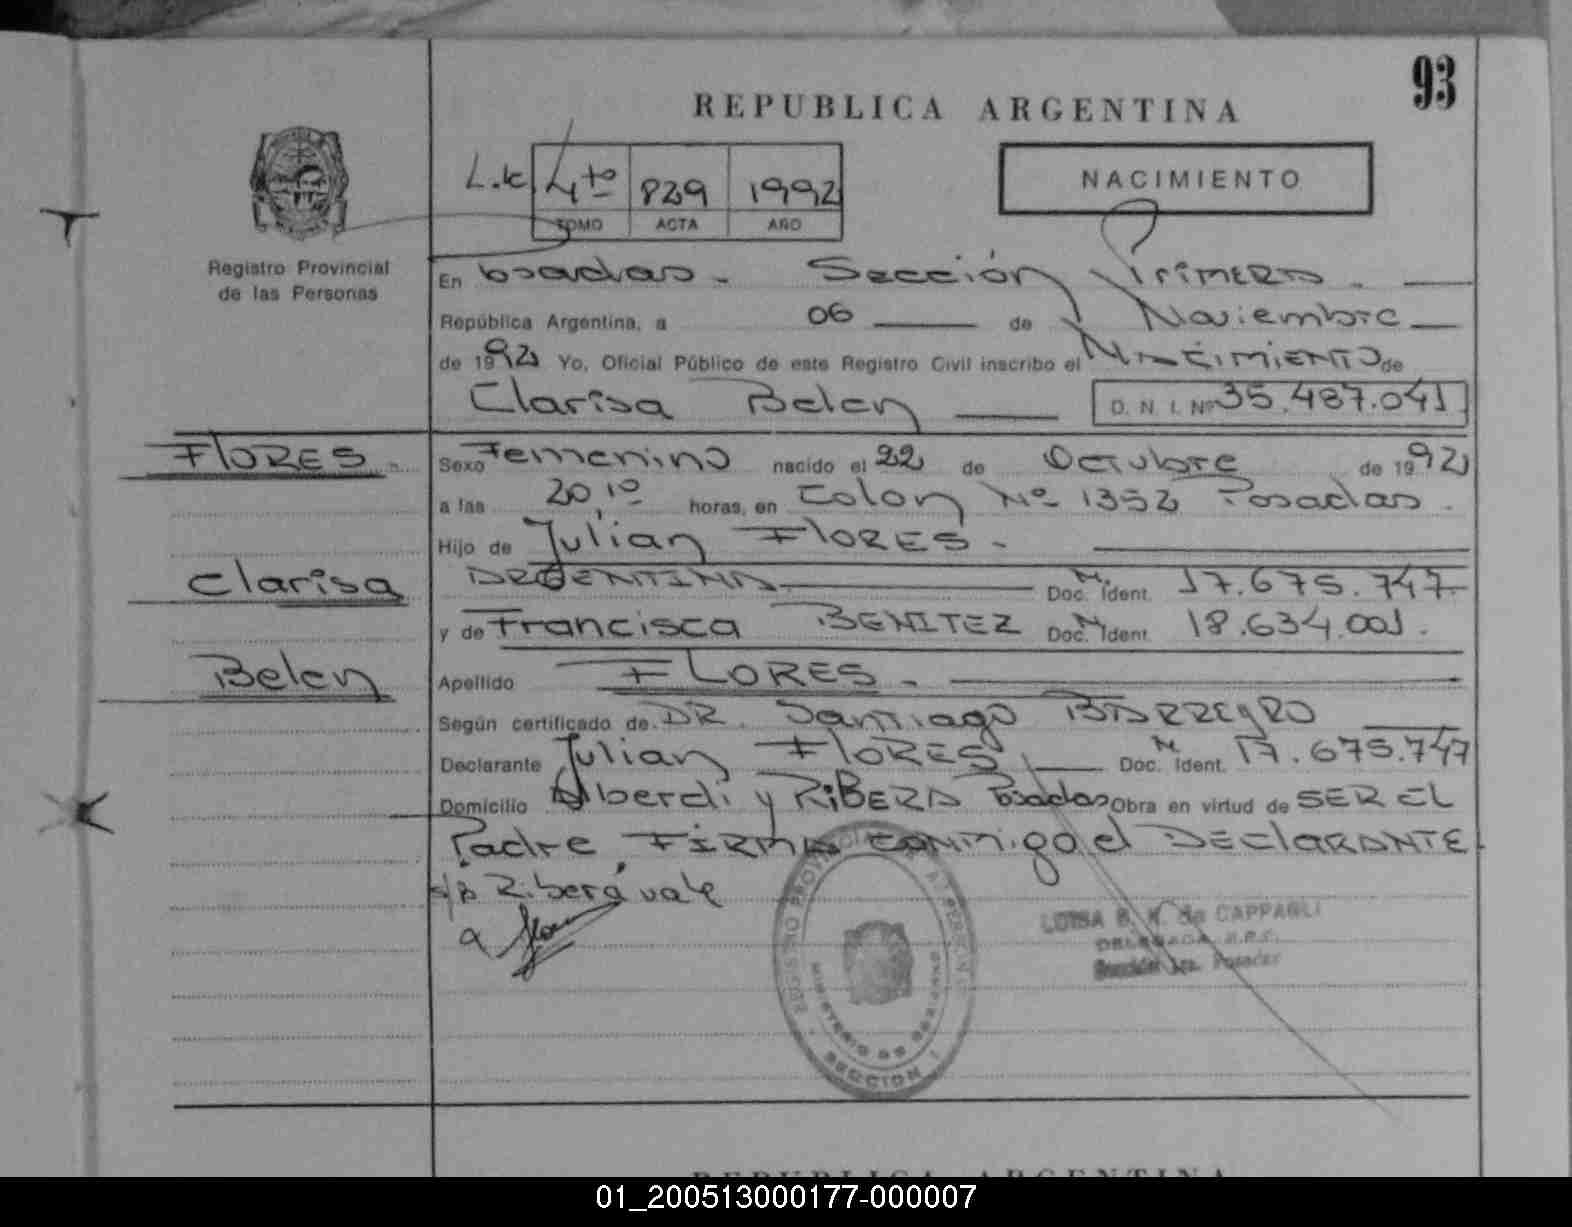 93
REPUBLICA ARGENTINA
NACIMIENTO
4to 829 1992
TOMO ACTA AÑO
Registro Provincial
de las Personas
En Posadas - Sección Primera.
República Argentina, a 06 de Noviembre
de 1992 Yo, Oficial Público de este Registro Civil inscribo el NACIMIENTO de
Clarisa Belen D. N. I. Nº 35.487.041
FLORES Sexo Femenino nacido el 22 de Octubre de 1992
a las 20,10 horas, en Colon Nº 1352 Posadas.
Hijo de Julian FLORES.
Clarisa ARGENTINA Doc. M. Ident. 17.675.747
y de Francisca BENITEZ Doc. M Ident. 18.634.001.
Belen Apellido FLORES.
Según certificado de DR. Santiago BARREYRO
Declarante Julian FLORES Doc. M Ident. 17.675.747
Domicilio Alberdi y RIBERA Posadas Obra en virtud de SER EL
Padre FIRMA conmigo el DECLARANTE
s/r Ribera vale
REGISTRO PROVINCIAL DE LAS PERSONAS
MINISTERIO DE GOBIERNO
SECCION 1
LUISA B. K. de CAPPAGLI
DELEGADA R.P.P.
Sección 1ra. Posadas
REPUBLICA ARGENTINA
01_200513000177-000007